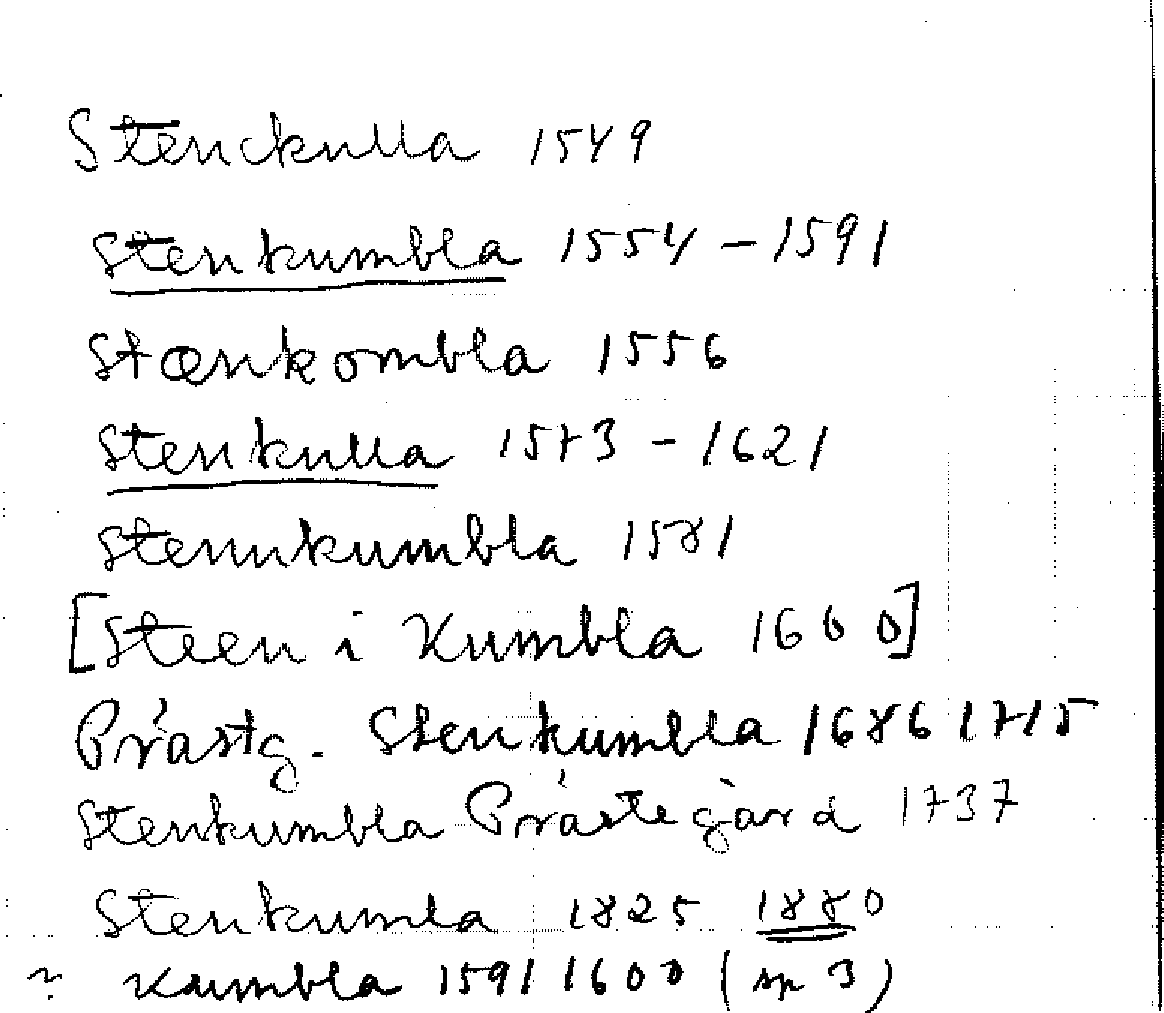 Stenckulla 1549
Stenkumbla 1554 – 1591
Stænkombla 1556
Stenkulla 1573 – 1621
Stennkumbla 1581
[Steen i Kumbla 1600]
Prästg. Stenkumbla 1686 1715
Stenkumbla Prästegård 1737
Stenkumla 1825 1880
? Kumbla 1591 1600 (sp 3)